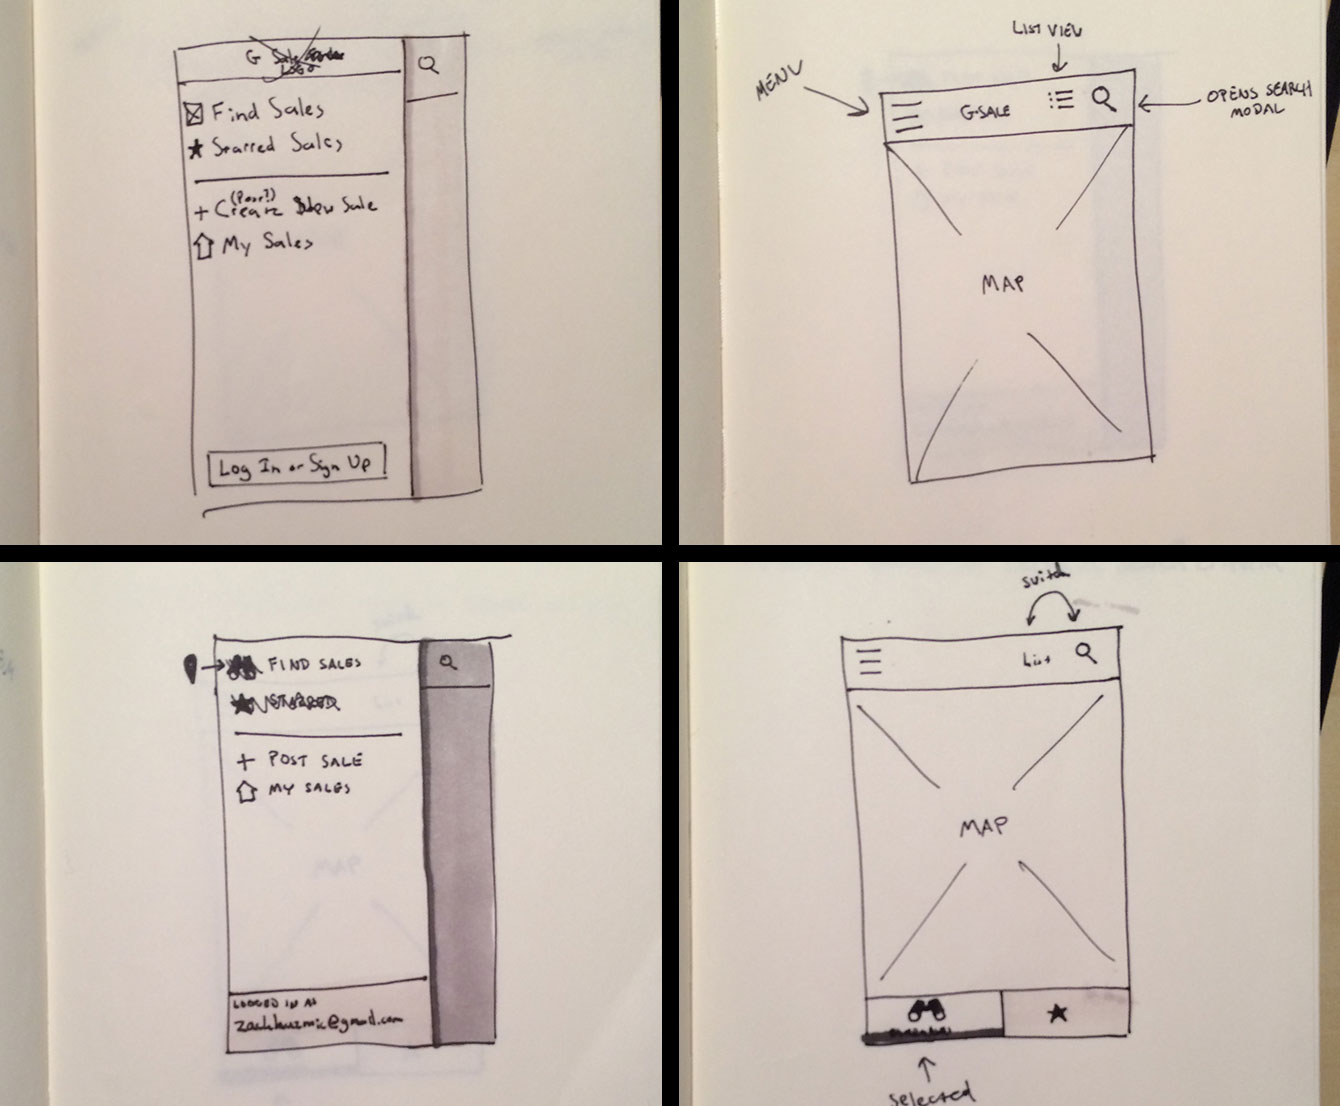 G Sale
Logo
Find Sales
Starred Sales
(Post?)
+ Create New Sale
My Sales
Log In or Sign Up
LIST VIEW
MENU
G-SALE
OPENS SEARCH
MODAL
MAP
FIND SALES
STARRED
+ POST SALE
MY SALES
LOGGED IN AS
zachkuzmic@gmail.com
switch
List
MAP
selected